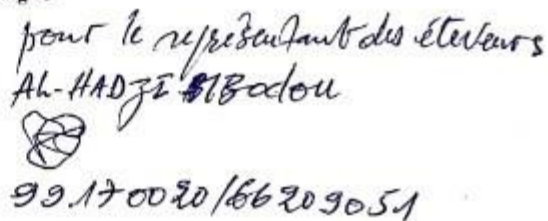 pour le représentant des éleveurs
AL-HADJI Bodou
99.170020/66209051